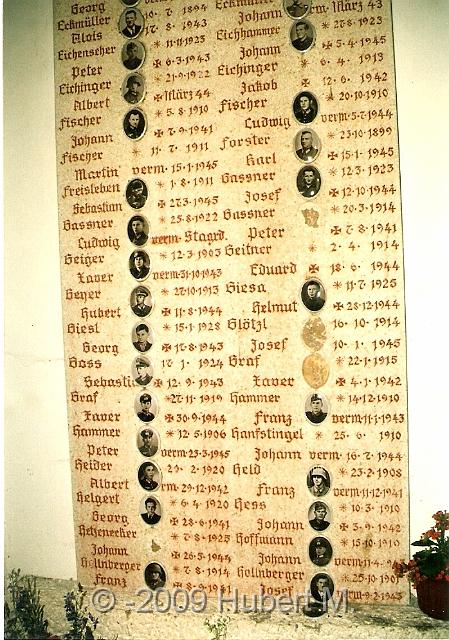 Georg
Eckmüller * 10·7·1894
Alois ✠ 17·8·1943
Eichenseher * 11·11·1923
Peter ✠ 6·3·1943
Eichinger * 21·9·1922
Albert ✠ März 44
Fischer * 5·8·1910
Johann ✠ 7·9·1941
Fischer * 11·7·1911
Martin verm·15·1·1945
Freisleben * 1·8·1911
Sebastian ✠ 27·3·1945
Gassner * 25·8·1922
Ludwig verm·Stagrd.
Geiger * 12·3·1903
Xaver verm·31·10·1943
Geyer * 27·10·1913
Hubert ✠ 11·8·1944
Giesl * 15·1·1928
Georg ✠ 17·8·1943
Goss 17·1·1924
Sebastia ✠ 12·9·1943
Graf * 27·11·1919
Xaver ✠ 30·9·1944
Hammer * 12·5·1906
Peter verm·23·3·1945
Heider 2·1920
Albert rm·29·12·1942
Helgert * 6·4·1920
Georg ✠ 28·6·1941
Hetzenecker * 7·8·1925
Johann ✠ 26·5·1944
Hollnberger * 7·8·1914
Franz ✠ 8·9·1941
Eckmüller
Johann rm·März 43
Eichhammer * 27·8·1923
Johann ✠ 5·4·1945
Eichinger * 6·4·1913
Jakob ✠ 12·6·1942
Fischer * 20·10·1910
Ludwig verm·5·7·1944
Forster * 23·10·1899
Karl ✠ 15·1·1945
Gassner * 12·3·1923
Josef ✠ 12·10·1944
Gassner * 20·3·1914
Peter ✠ 7·8·1941
Geitner * 2·4·1914
Eduard ✠ 18·6·1944
Giesa * 11·7·1925
Helmut ✠ 28·12·1944
Glötzl 16·10·1914
Josef 10·1·1945
Graf * 22·1·1915
Xaver ✠ 4·1·1942
Hammer * 14·12·1910
Franz verm·11·1·1943
Hanfstingel * 25·6·1910
Johann verm·16·7·1944
Held * 23·2·1908
Franz verm·11·12·1941
Hess * 10·3·1910
Johann ✠ 3·9·1942
Hoffmann * 15·10·1910
Johann verm·1·4·
Hollnberger * 25·10·190
Josef rm·9·2·1943
© -2009 Hubert M